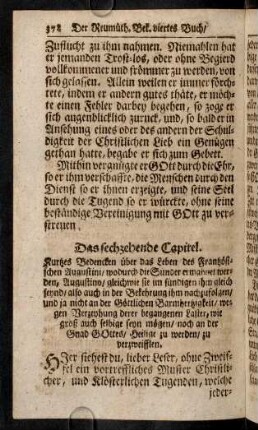 372 Der Reumüth. Bek. viertes Buch/
Zuflucht zu ihm nahmen. Niemahlen hat
er jemanden Trost-los, oder ohne Begierd
vollkommener und frömmer zu werden, von
sich gelassen. Allein weilen er immer förch-
tete, indem er andern gutes thäte, er möch-
te einen Fehler darbey begehen, so zoge er
sich augenblicklich zuruck, und, so bald er in
Ansehung eines oder des andern der Schul-
digkeit der Christlichen Lieb ein Genügen
gethan hatte, begabe er sich zum Gebett.
Mithin vergnügte er GOtt durch die Ehr,
so er ihm verschaffte, die Menschen durch den
Dienst so er ihnen erzeigte, und seine Seel
durch die Tugend so er würckte, ohne seine
beständige Vereinigung mit GOtt zu zer-
streuen.
Das sechzehende Capitel.
Kurtzes Bedencken über das Leben des Frantzösi-
schen Augustini, wodurch die Sünder ermahnet wer-
den, Augustino, gleichwie sie im sündigen ihm gleich
seynd, also auch in der Bekehrung ihm nachzufolgen,
und ja nicht an der Göttlichen Barmhertzigkeit, we-
gen Verzeyhung derer begangenen Laster, wie
groß auch selbige seyn mögen, noch an der
Gnad GOttes, Heilige zu werden, zu
verzweifflen.
HIer siehest du, lieber Leser, ohne Zweif-
fel ein vortreffliches Muster Christli-
cher, und Klösterlichen Tugenden, welche
jeder-